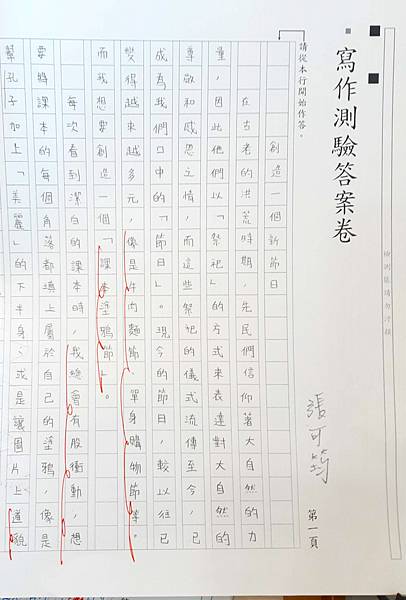 寫作測驗答案卷
張可筠
第一頁
請從本行開始作答。
創造一個新節日
在古老的洪荒時期,先民們信仰著大自然的力
量,因此他們以「祭祀」的方式來表達對大自然的
尊敬和感恩之情,而這些祭祀的儀式流傳至今,已
成為我們口中的「節日」。現今的節日,較以往已
變得越來越多元,像是牛肉麵節、單身購物節等。
而我想要創造一個「課本塗鴉節」。
每次看到潔白的課本時,我總會有股衝動,想
要將課本的每個角落都填上屬於自己的塗鴉,像是
幫孔子加上「美麗」的下半身、或是讓圖片上道貌